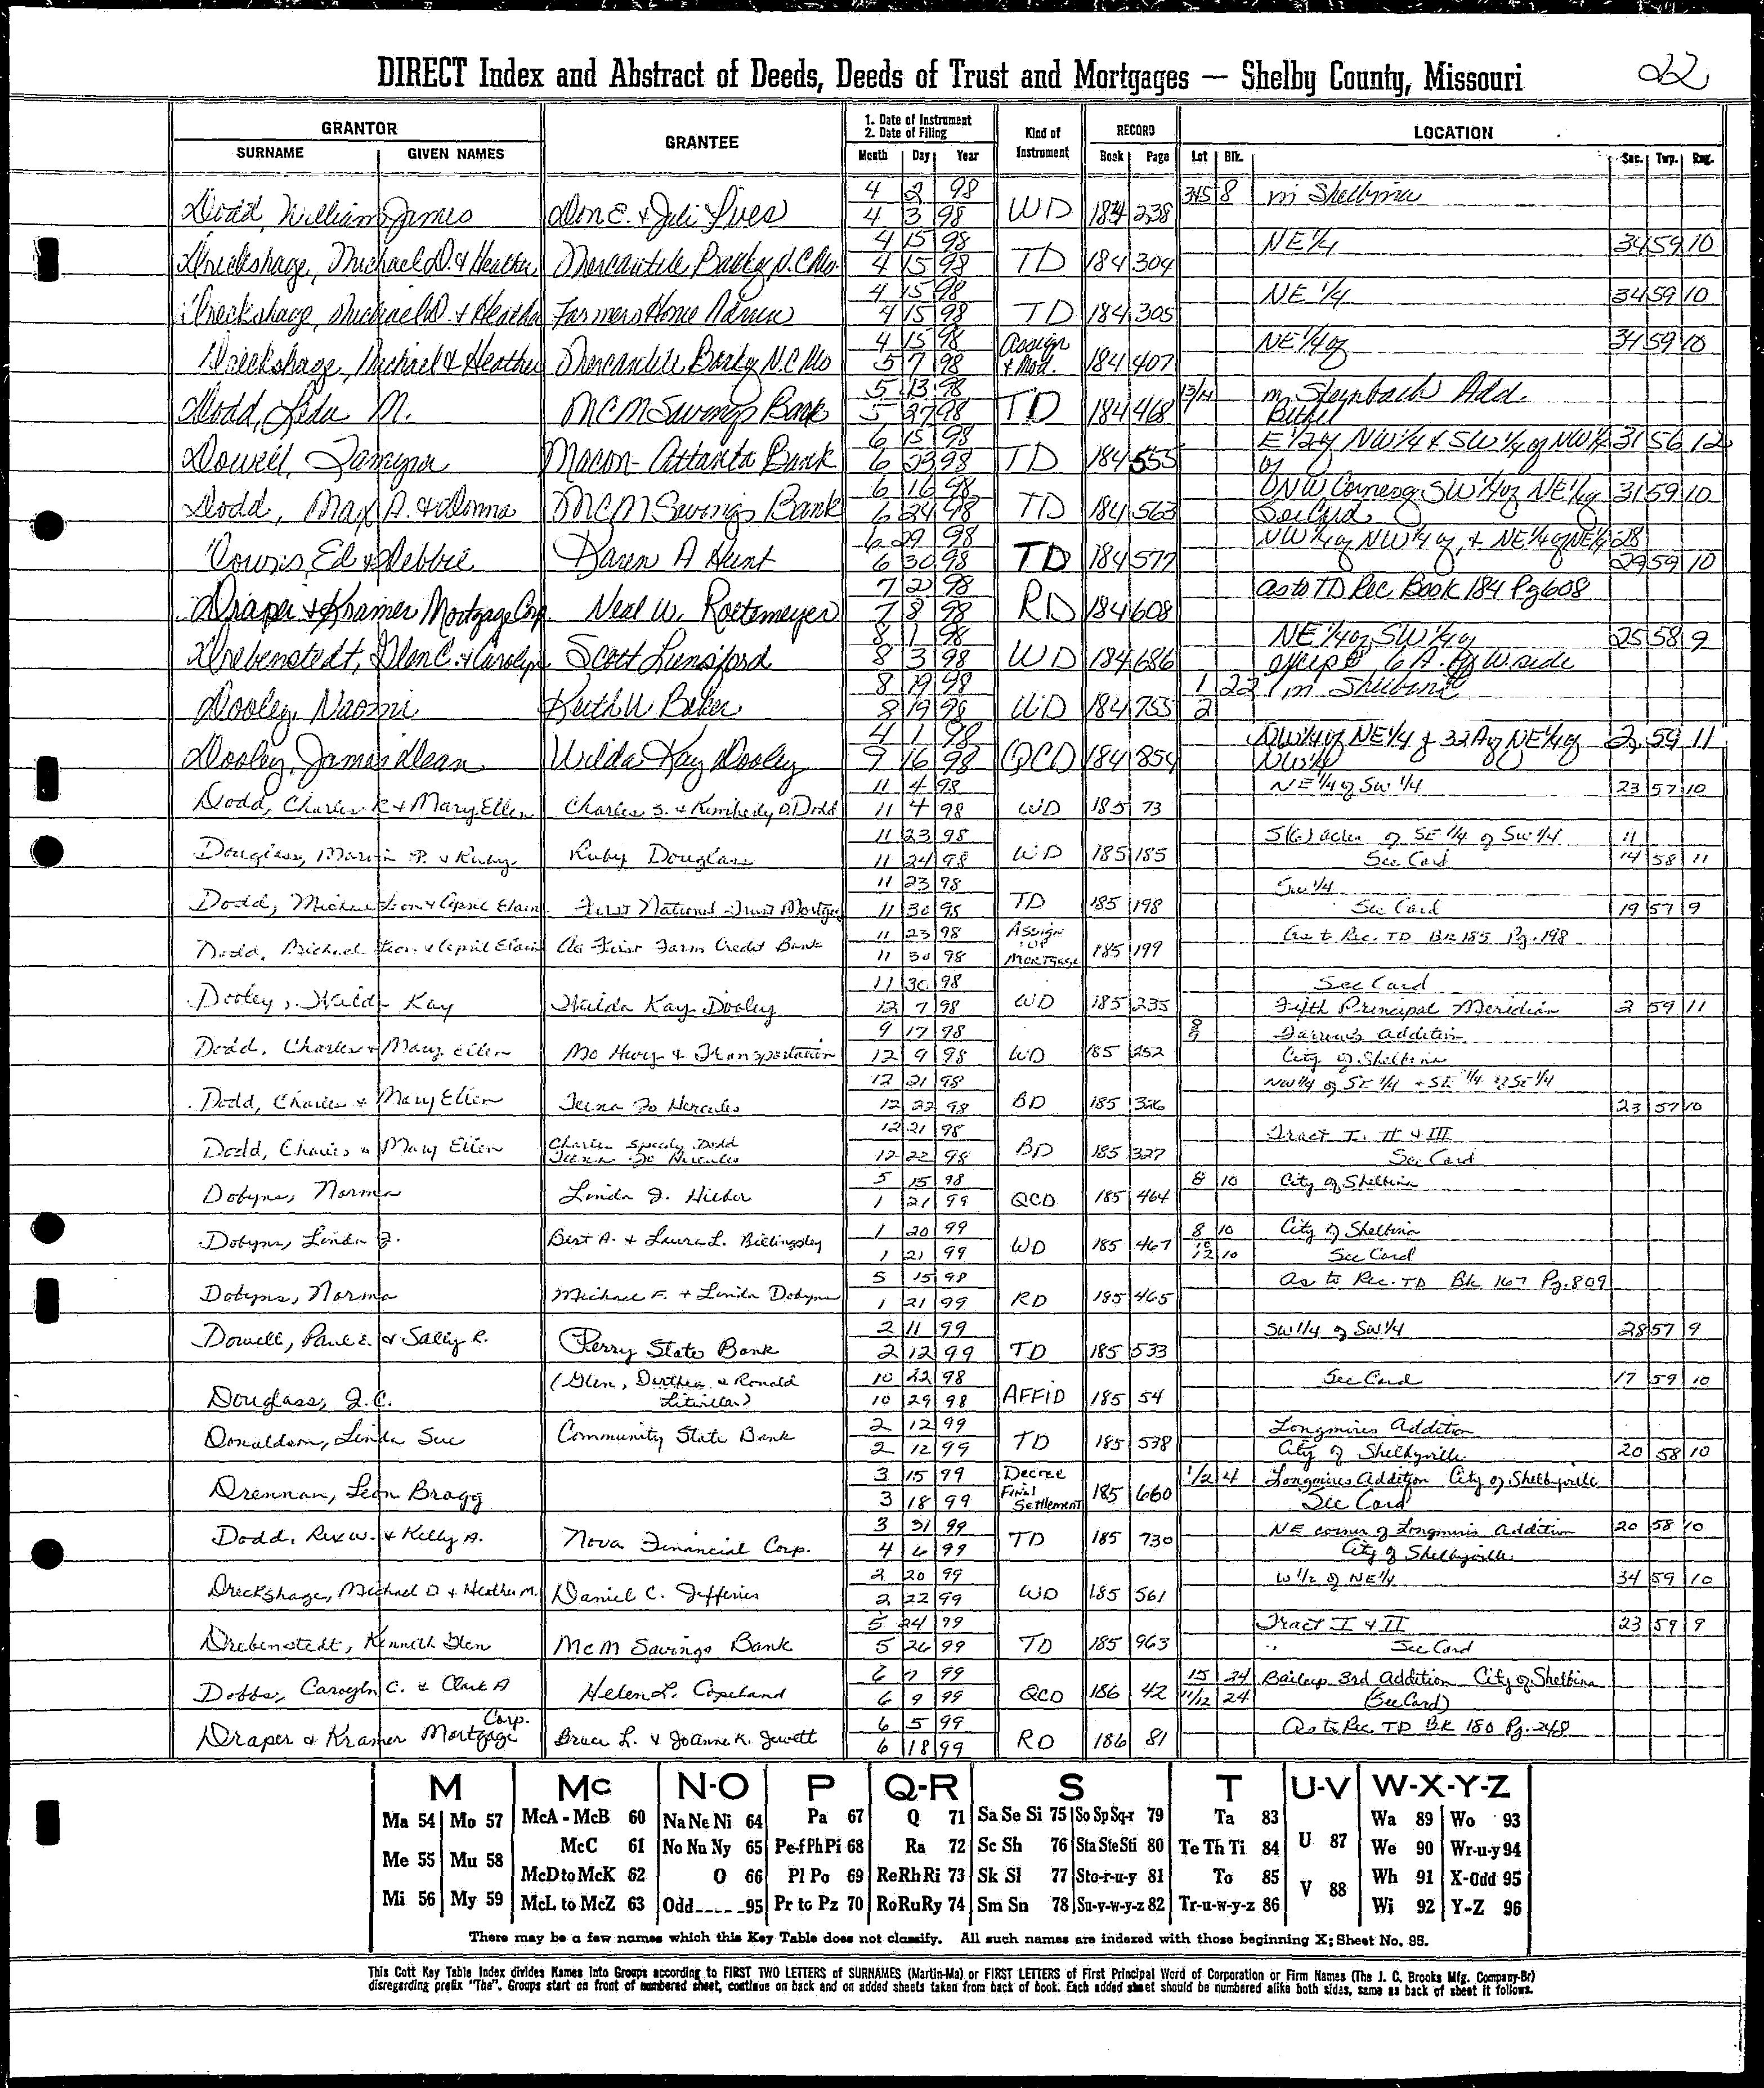 22
DIRECT Index and Abstract of Deeds, Deeds of Trust and Mortgages — Shelby County, Missouri
GRANTOR GRANTEE 1. Date of Instrument 2. Date of Filing Kind of Instrument RECORD LOCATION
SURNAME GIVEN NAMES Month Day Year Book Page Lot Blk. Sec. Twp. Rng.
4 2 98 8 in Shelbina
Dodd, William James Don E. & Juli Ives 4 3 98 WD 184 238
4 15 98 NE 1/4 34 59 10
Dreckshage, Michael D. & Heather Mercantile Bank of N.C. Mo. 4 15 98 TD 184 304
4 15 98 NE 1/4 34 59 10
Dreckshage, Michael D. & Heather Farmers Home Admin 4 15 98 TD 184 305
4 15 98 Assign NE 1/4 of 34 59 10
Dreckshage, Michael & Heather Mercantile Bank of N.C. Mo 5 7 98 & Mod. 184 407
5 13 98 13/14 in Steinbach Add.
Dodd, Leda M. MCM Savings Bank 5 27 98 TD 184 468 Bethel
6 15 98 E 1/2 of NW 1/4 & SW 1/4 of NW 1/4 31 56 12
Dowell, Macon-Atlanta Bank 6 23 98 TD 184 555 of
6 16 98 NW Corner of SW 1/4 of NE 1/4 31 59 10
Dodd, Max A. & Donna MCM Savings Bank 6 24 98 TD 184 563 See Card
6 29 98 NW 1/4 of NW 1/4 of, & NE 1/4 of NE 1/4 28
Ed & Debbie Karen A Hunt 6 30 98 TD 184 577 29 59 10
7 2 98 as to TD Rec Book 184 Pg 608
Draper & Kramer Mortgage Corp. Neal W. Roetemeyer 7 8 98 RD 184 608
8 1 98 NE 1/4 of SW 1/4 of 25 58 9
Drebenstedt, Glen C. & Carolyn Scott Lunsford 8 3 98 WD 184 686 except 6 A. off W. side
8 19 98 1 22 in Shelbina
Dooley, Naomi Keith W Baker 8 19 98 WD 184 755 2
4 1 98 NW 1/4 of NE 1/4 & 32 A of NE 1/4 of 2 59 11
Dooley, James Dean Wilda Kay Dooley 9 16 98 QCD 184 854 NW 1/4
11 4 98 NE 1/4 of SW 1/4 23 57 10
Dodd, Charles R & Mary Ellen Charles S. & Kimberly D. Dodd 11 4 98 WD 185 73
11 23 98 5(6) acres of SE 1/4 of SW 1/4 11
Douglass, Marvin P. & Ruby Ruby Douglass 11 24 98 WD 185 185 See Card 14 58 11
11 23 98 SW 1/4
Dodd, Michael Leon & April Elain First National Trust Mortgage 11 30 98 TD 185 198 See Card 19 57 9
11 23 98 Assign As to Rec. TD Bk 185 Pg. 198
Dodd, Michael Leon & April Elain Ag First Farm Credit Bank 11 30 98 of Mortgage 185 199
11 30 98 See Card
Dooley, Wilda Kay Wilda Kay Dooley 12 7 98 WD 185 235 Fifth Principal Meridian 2 59 11
9 17 98 8 Addition
Dodd, Charles & Mary Ellen Mo Hwy & Transportation 12 9 98 WD 185 252 9 City of Shelbina
12 21 98 NW 1/4 of SE 1/4 & SE 1/4 of SE 1/4
Dodd, Charles & Mary Ellen Teena Jo Hercules 12 22 98 BD 185 326 23 57 10
12 21 98 Tract I, II & III
Dodd, Charles & Mary Ellen Charles Speedy Dodd Teena Jo Hercules 12 22 98 BD 185 327 See Card
5 15 98 8 10 City of Shelbina
Dobyns, Norma Linda J. Hieber 1 21 99 QCD 185 464
1 20 99 8 10 City of Shelbina
Dobyns, Linda J. Bert A. & Laura L. Billingsley 1 21 99 WD 185 467 12 10 See Card
5 15 98 As to Rec. TD Bk 167 Pg. 809
Dobyns, Norma Michael F. & Linda Dobyns 1 21 99 RD 185 465
2 11 99 SW 1/4 of SW 1/4 28 57 9
Dowell, Paul E. & Sally R. Perry State Bank 2 12 99 TD 185 533
(Glen, Dorthea & Ronald 10 22 98 See Card 17 59 10
Douglass, J.C. 10 29 98 AFFID 185 54
2 12 99 Longmires Addition
Donaldson, Linda Sue Community State Bank 2 12 99 TD 185 538 City of Shelbyville 20 58 10
3 15 99 Decree 1/2 4 Longmires Addition City of Shelbyville
Drennan, Leon Bragg 3 18 99 Final Settlement 185 660 See Card
3 31 99 NE corner of Longmires Addition 20 58 10
Dodd, Rex W. & Kelly A. Nova Financial Corp. 4 6 99 TD 185 730 City of Shelbyville
2 20 99 W 1/2 of NE 1/4 34 59 10
Dreckshage, Michael D & Heather M. Daniel C. Jefferies 2 22 99 WD 185 561
5 24 99 Tract I & II 23 59 9
Drebenstedt, Kenneth Glen MCM Savings Bank 5 26 99 TD 185 963 See Card
6 7 99 15 24 Baileys 3rd Addition City of Shelbina
Dobbs, Carolyn C. & Clark A Helen L. Copeland 6 9 99 QCD 186 42 11/12 24 (See Card)
Corp. 6 5 99 As to Rec TD BK 180 Pg. 248
Draper & Kramer Mortgage Bruce L. & Joanne K. Jewett 6 18 99 RD 186 81
M Mc N-O P Q-R S T U-V W-X-Y-Z
Ma 54 Mo 57 McA - McB 60 Na Ne Ni 64 Pa 67 Q 71 Sa Se Si 75 So Sp Sq-r 79 Ta 83 U 87 Wa 89 Wo 93
Me 55 Mu 58 McC 61 No Nu Ny 65 Pe-f Ph Pi 68 Ra 72 Sc Sh 76 Sta Ste Sti 80 Te Th Ti 84 We 90 Wr-u-y 94
McD to McK 62 O 66 Pl Po 69 Re Rh Ri 73 Sk Sl 77 Sto-r-u-y 81 To 85 V 88 Wh 91 X-Odd 95
Mi 56 My 59 McL to McZ 63 Odd 95 Pr to Pz 70 Ro Ru Ry 74 Sm Sn 78 Su-v-w-y-z 82 Tr-u-w-y-z 86 Wi 92 Y-Z 96
There may be a few names which this Key Table does not classify. All such names are indexed with those beginning X; Sheet No. 95.
This Cott Key Table Index divides Names Into Groups according to FIRST TWO LETTERS of SURNAMES (Martin-Ma) or FIRST LETTERS of First Principal Word of Corporation or Firm Names (The J. C. Brooks Mfg. Company-Br)
disregarding prefix "The". Groups start on front of numbered sheet, continue on back and on added sheets taken from back of book. Each added sheet should be numbered alike both sides, same as back of sheet it follows.